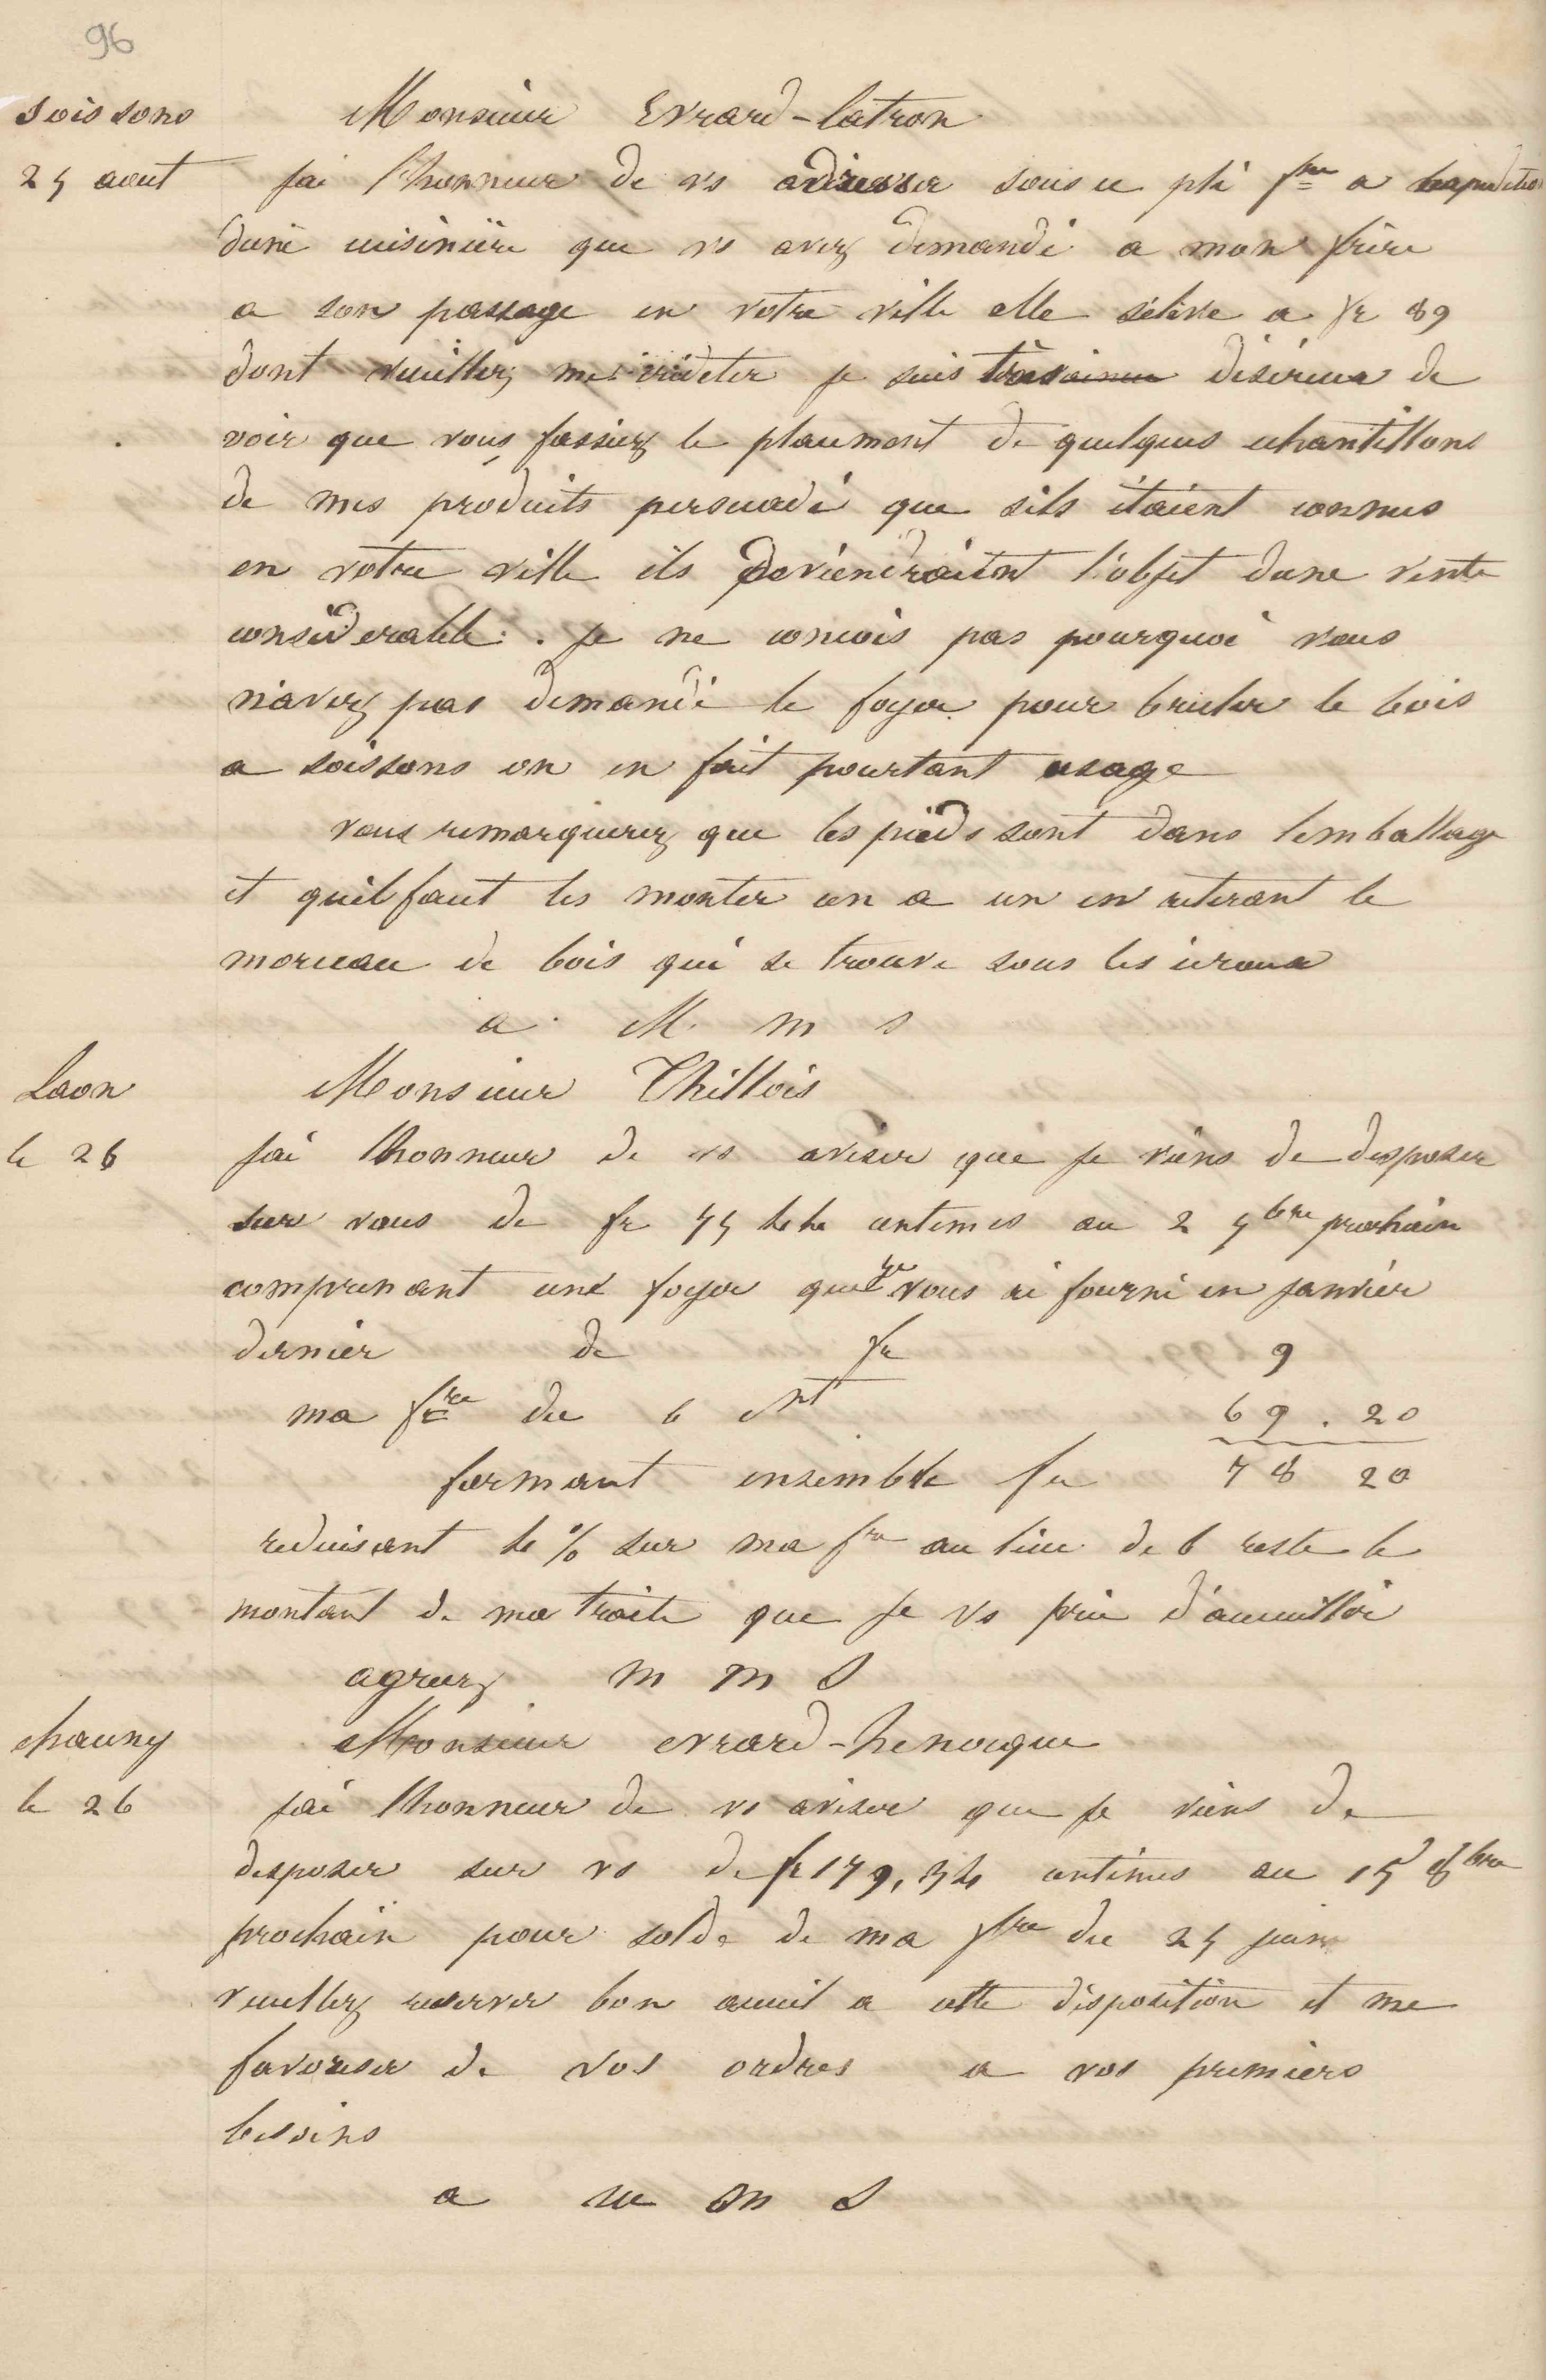 96
soissons Monsieur Evrard-latron
25 aout jai lhonneur de vs adresser sous ce pli fre a lexpedition
dune cuisiniere que vs avez demandé a mon frère
a son passage en votre ville elle seleve a fr 89
dont veuillez me crediter je suis très désireux de
voir que vous fassiez le placement de quelques echantillons
de mes produits persuadé que sils étaient connus
en votre ville ils deviendraient l'objet dune vente
considerable. je ne concois pas pourquoi vous
n'avez pas demandé le foyer pour bruler le bois
a soissons on en fait pourtant usage
vous remarquerez que les pieds sont dans lemballage
et quil faut les monter un a un en retirant le
morceau de bois qui se trouve sous les ecrous
a M m s
Laon Monsieur Thillois
le 26 jai lhonneur de vs aviser que je viens de disposer
sur vous de fr 75 44 centimes au 25 bre prochain
comprenant une foyer que je vous ai fourni en janvier
dernier de fr 9
ma fre du 6 ct 69.20
formant ensemble fr 78 20
reduisant 4 % sur ma fre au lieu de 6 reste le
montant de ma traite que je vs prie d'acceuillir
agreez m m S
chauny Monsieur evrard-henocque
le 26 jai lhonneur de vs aviser que je viens de
disposer sur vs de fr 179,34 centimes au 15 8bre
prochain pour solde de ma fre du 25 juin
veuillez reserver bon acceuil a cette disposition et me
favoriser de vos ordres a vos premiers
besoins
a m m S